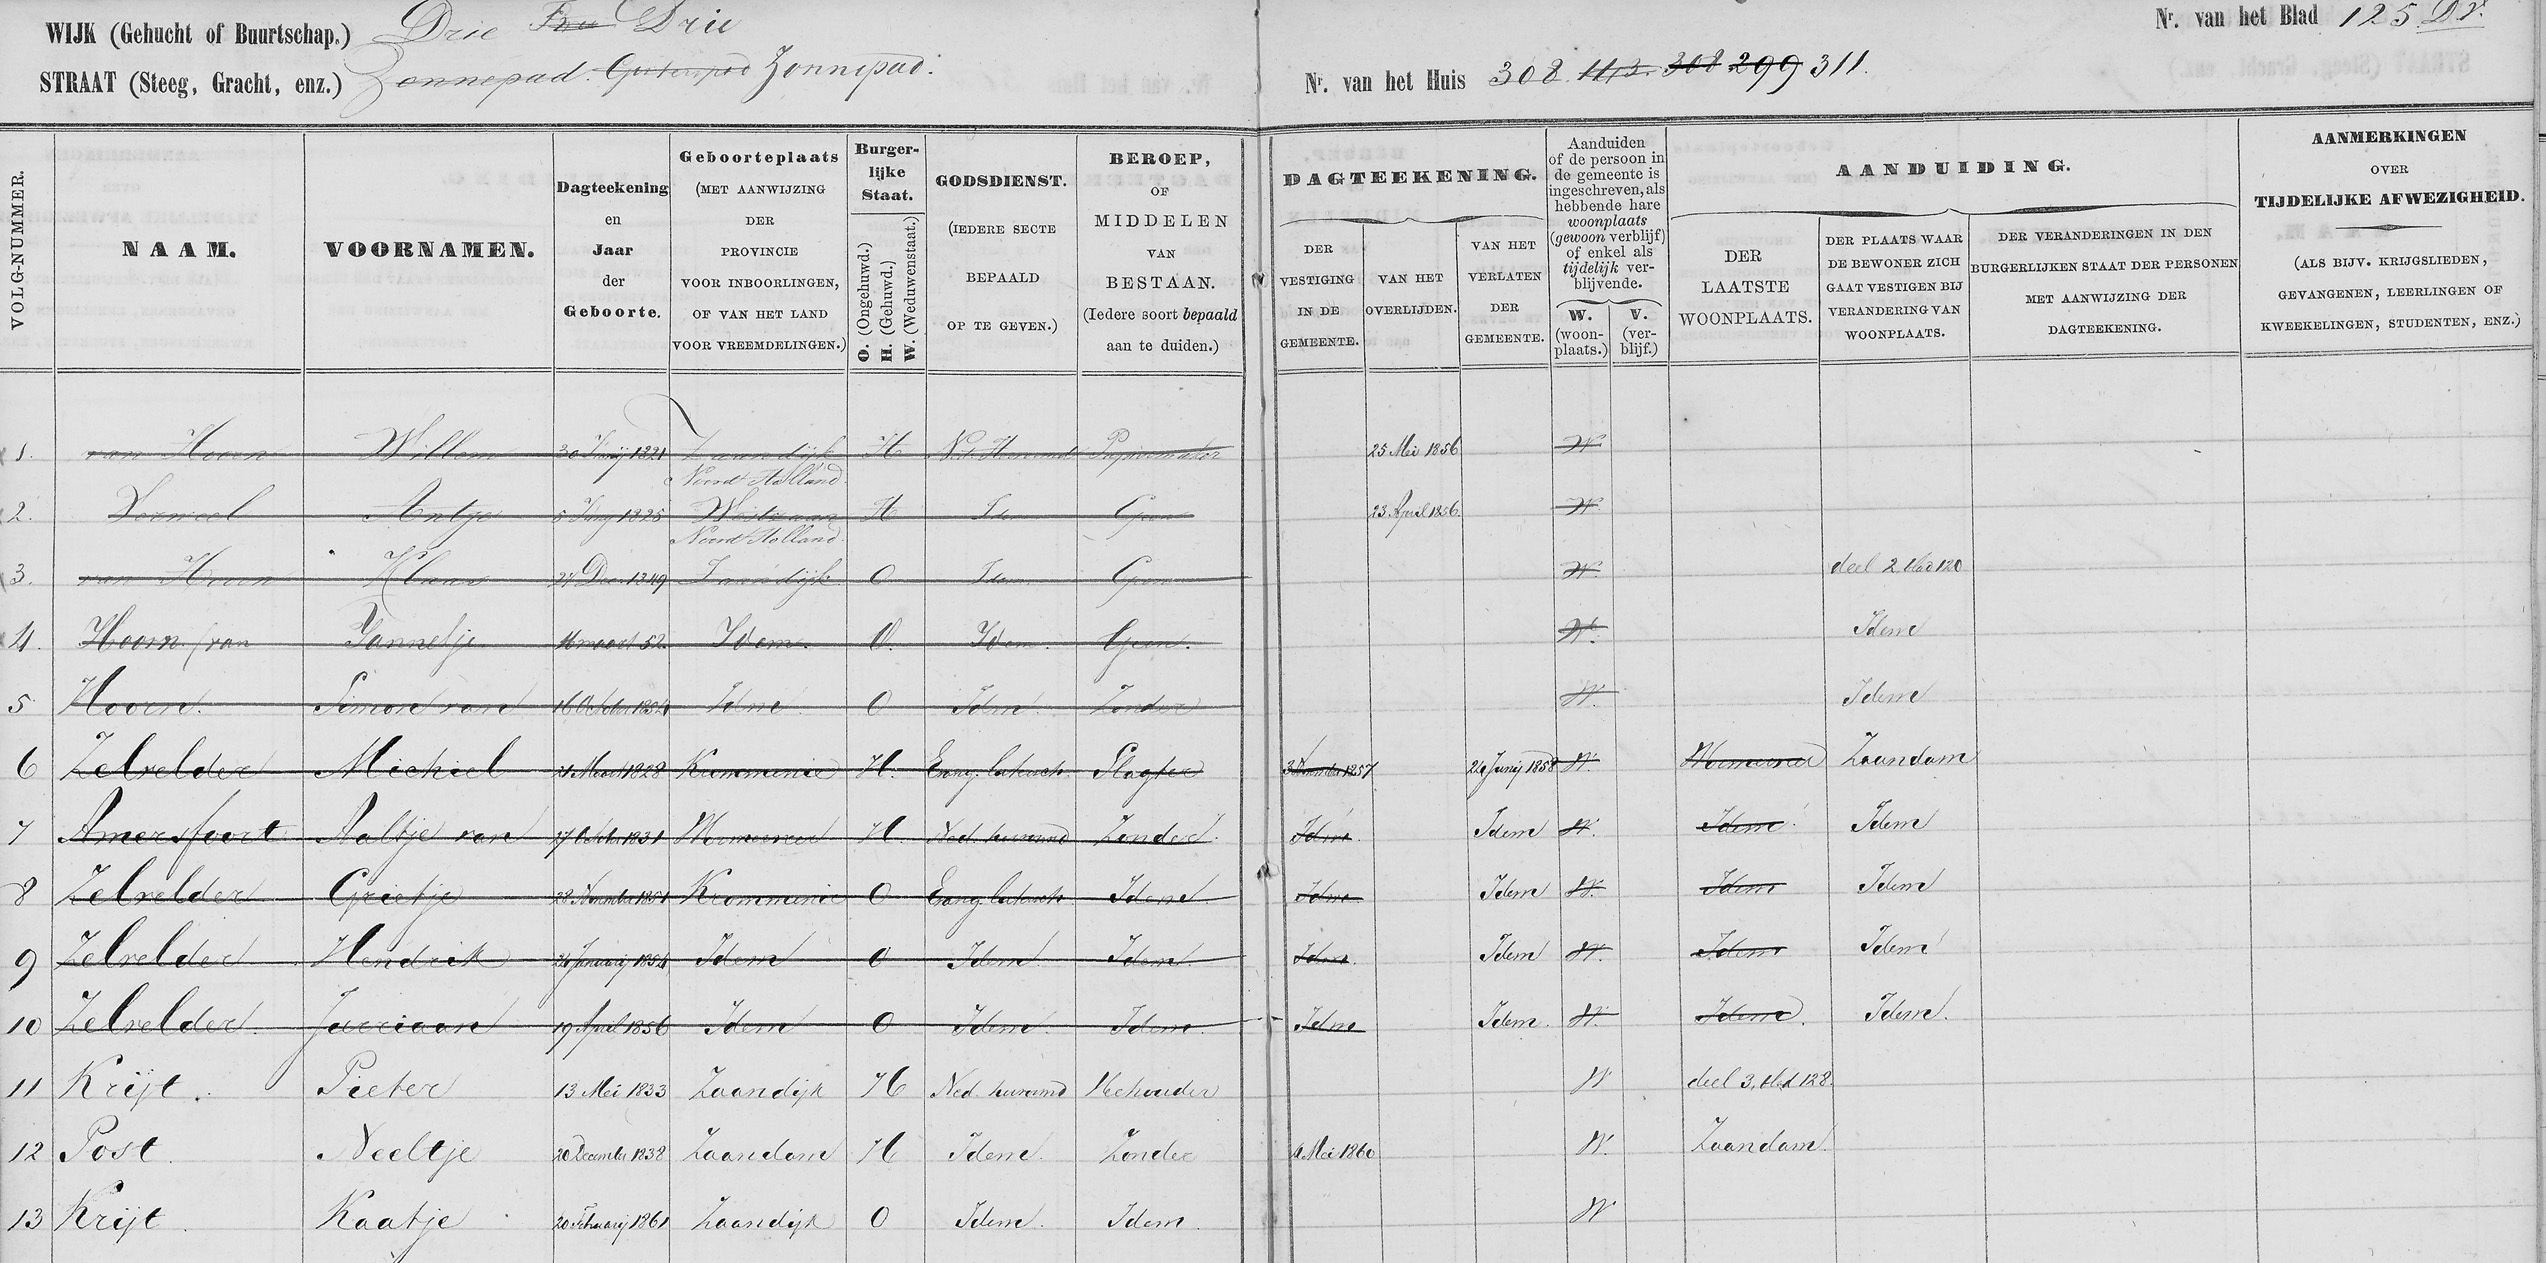 WIJK (Gehucht of Buurtschap.) Drie Drie
Nr. van het Blad 125 Dr.
STRAAT (Steeg, Gracht, enz.) Zonnepad. Zonnepad.
Nr. van het Huis 308 113. 308 299 311.
VOLG-NUMMER.
NAAM.
VOORNAMEN.
Dagteekening
en
Jaar
der
Geboorte.
Geboorteplaats
(MET AANWIJZING
DER
PROVINCIE
VOOR INBOORLINGEN,
OF VAN HET LAND
VOOR VREEMDELINGEN.)
Burger-
lijke
Staat.
O. (Ongehuwd.)
H. (Gehuwd.)
W. (Weduwenstaat.)
GODSDIENST.
(IEDERE SECTE
BEPAALD
OP TE GEVEN.)
BEROEP,
OF
MIDDELEN
VAN
BESTAAN.
(Iedere soort bepaald
aan te duiden.)
DAGTEEKENING.
DER
VESTIGING
IN DE
GEMEENTE.
VAN HET
OVERLIJDEN.
VAN HET
VERLATEN
DER
GEMEENTE.
Aanduiden
of de persoon in
de gemeente is
ingeschreven, als
hebbende hare
woonplaats
(gewoon verblijf)
of enkel als
tijdelijk ver-
blijvende.
W.
(woon-
plaats.)
V.
(ver-
blijf.)
AANDUIDING.
DER
LAATSTE
WOONPLAATS.
DER PLAATS WAAR
DE BEWONER ZICH
GAAT VESTIGEN BIJ
VERANDERING VAN
WOONPLAATS.
DER VERANDERINGEN IN DEN
BURGERLIJKEN STAAT DER PERSONEN
MET AANWIJZING DER
DAGTEEKENING.
AANMERKINGEN
OVER
TIJDELIJKE AFWEZIGHEID.
(ALS BIJV. KRIJGSLIEDEN,
GEVANGENEN, LEERLINGEN OF
KWEEKELINGEN, STUDENTEN, ENZ.)
1. van Hoorn Willem 30 Junij 1821 Zaandijk H Papiermaker 25 Mei 1856 W
Noord Holland.
2. Antje 5 Junij 1825 Westzaan H Idem Geen 23 April 1856. W
Noord Holland.
3. van Hoorn Klaas 27 Dec. 1849 Zaandijk O Idem Geen W. deel 2 blad 120
4. Hoorn (van Jannetje 16 maart 52. Idem. O. Idem. Geen. W. Idem
5 Hoorn. Simon van 16 October 1854 Idem O Idem. Zonder W. Idem
6 Zelvelder Michiel 21 Maart 1828 Krommenie H. Evang. Luthersch. Slagter 3 November 1857 29 Junij 1858 W. Wormerveer Zaandam
7 Amersfoort Aaltje van 17 October 1831 Wormerveer H. Ned. hervormd Zonder. Idem. Idem W. Idem. Idem
8 Zelvelder Grietje 28 November 1851 Krommenie O Evang. Luthersch Idem. Idem. Idem W. Idem Idem
9 Zelvelder Hendrik 24 Januarij 1854 Idem O Idem. Idem. Idem. Idem W. Idem Idem
10 Zelvelder. Jurriaan 19 April 1856 Idem O Idem. Idem. Idem Idem. W. Idem. Idem.
11 Krijt. Pieter 13 Mei 1833 Zaandijk H Ned. hervormd W deel 3, blad 128.
12 Post. Neeltje 20 December 1838 Zaandam H Idem. Zonder Mei 1860 W. Zaandam.
13 Krijt. Kaatje 20 Februarij 1861 Zaandijk O Idem. Idem. W